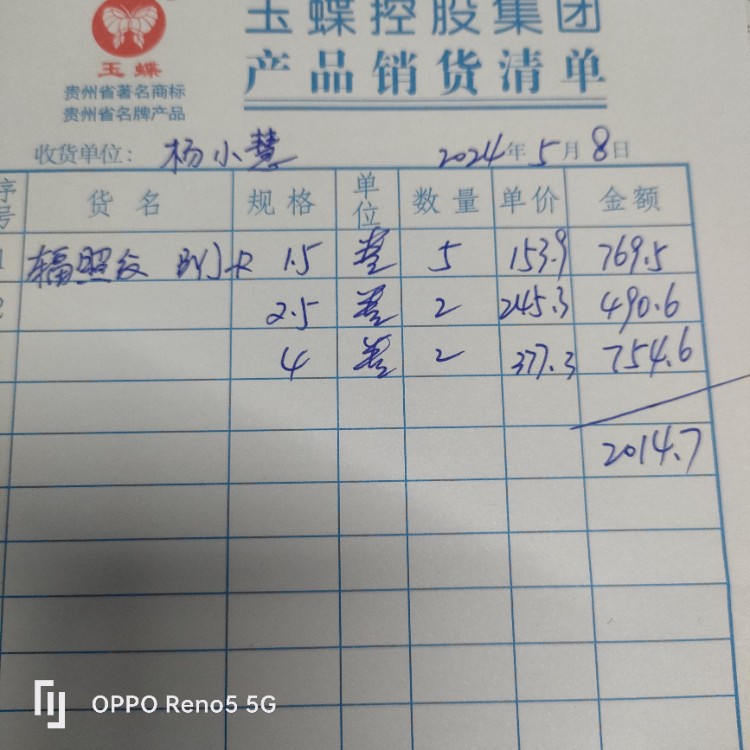 玉蝶控股集团
产品销货清单
玉蝶
贵州省著名商标
贵州省名牌产品
收货单位: 杨小慧 2024年5月8日
序号 货名 规格 单位 数量 单价 金额
1 辐照 1.5 5 153.9 769.5
2 2.5 2 245.3 490.6
4 2 377.3 754.6
2014.7
OPPO Reno5 5G